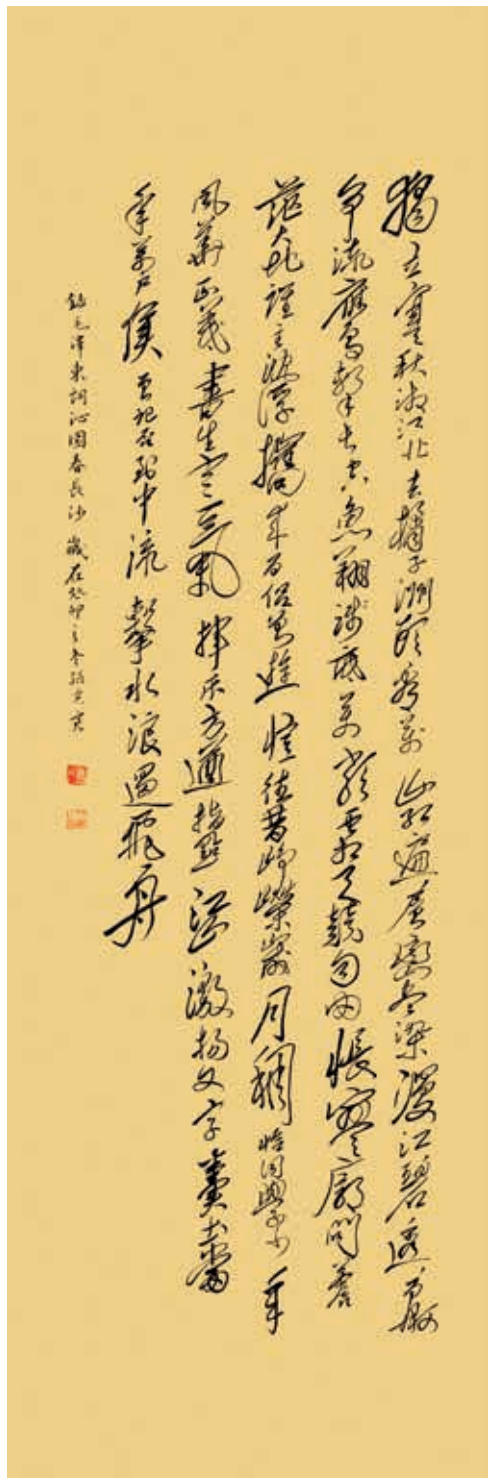 獨立寒秋湘江北去橘子洲頭看萬山紅遍層巒尽染漫江碧透百舸
争流鷹擊長空魚翔淺底萬類霜天競自由悵寥廓問蒼
茫大地誰主沉浮攜來百侣曾遊憶往昔崢嶸歲月稠恰同學少年
風華正茂書生意氣揮斥方遒指點江山激揚文字糞土當
年萬户侯曾記否到中流擊水浪遏飛舟
録毛澤東詞沁園春長沙 歲在癸卯之冬